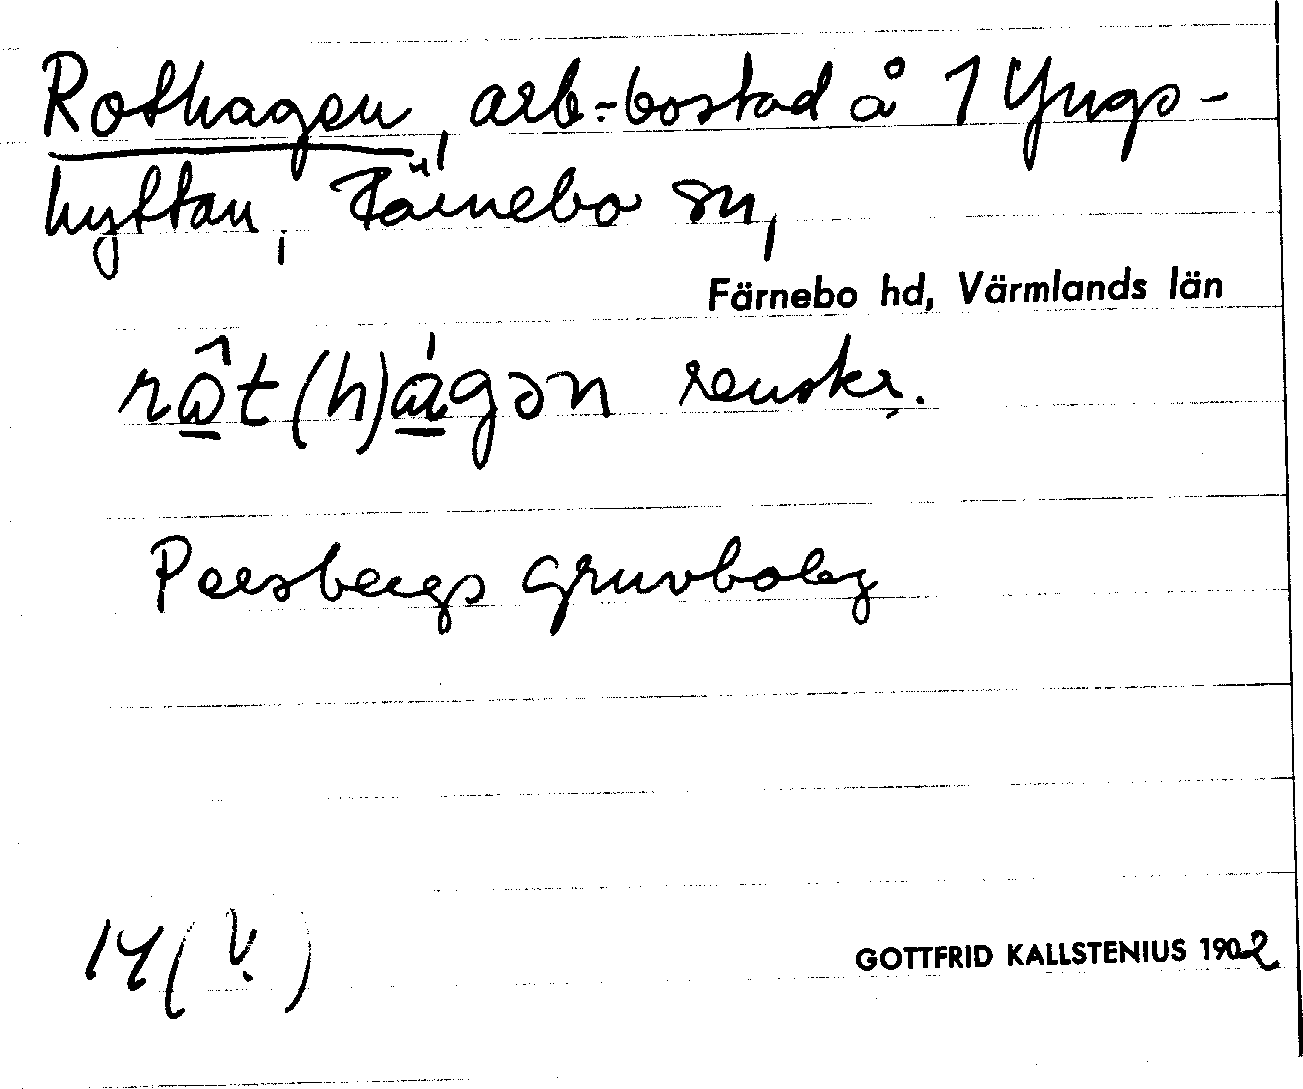 Rothagen, arb.-bostad å 1 Yngs-
hyttan, Färnebo sn,
Färnebo hd, Värmlands län
rω̂t(h)ágən renskr.
Persbergs gruvbolag
14 (V.)
GOTTFRID KALLSTENIUS 1902